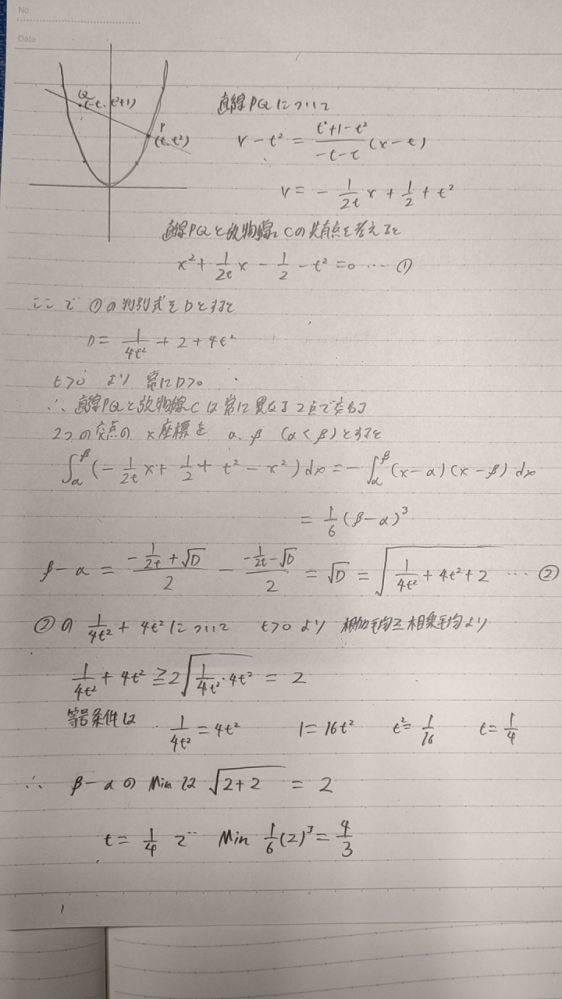 No.
Date
Q
(-t, t²+1)
P
(t, t²)
直線PQについて
y - t² = \frac{t²+1-t²}{-t-t}(x-t)
y = -\frac{1}{2t}x + \frac{1}{2} + t²
直線PQと放物線Cの共有点を考えると
x² + \frac{1}{2t}x - \frac{1}{2} - t² = 0 … ①
ここで ①の判別式をDとすると
D = \frac{1}{4t²} + 2 + 4t²
t>0 より 常にD>0
∴ 直線PQと放物線Cは常に異なる2点で交わる
2つの交点の x座標を α、β (α<β)とすると
∫_α^β (-\frac{1}{2t}x + \frac{1}{2} + t² - x²)dx = -∫_α^β (x-α)(x-β)dx
= \frac{1}{6}(β-α)³
β-α = \frac{-\frac{1}{2t}+√D}{2} - \frac{-\frac{1}{2t}-√D}{2} = √D = \sqrt{\frac{1}{4t²}+4t²+2} … ②
②の \frac{1}{4t²} + 4t² について t>0より 相加平均≧相乗平均より
\frac{1}{4t²} + 4t² ≧ 2\sqrt{\frac{1}{4t²}・4t²} = 2
等号条件は \frac{1}{4t²} = 4t² 1 = 16t² t² = \frac{1}{16} t = \frac{1}{4}
∴ β-αの Minは \sqrt{2+2} = 2
t = \frac{1}{4} で Min \frac{1}{6}(2)³ = \frac{4}{3}